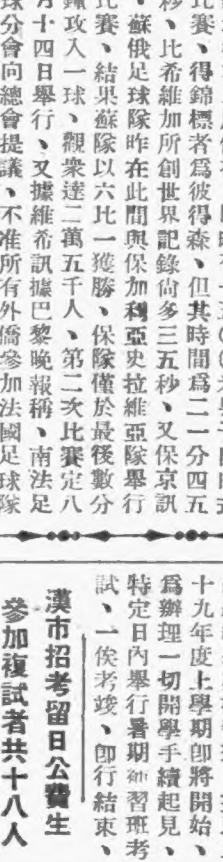 賽、得錦標者爲彼得森、但其時間爲二一分四五
秒、比希維加所創世界記錄尙多三五秒、又保京訊
、蘇俄足球隊昨在此間與保加利亞史拉維亞隊舉行
比賽、結果蘇隊以六比一獲勝、保隊僅於最後數分
鐘攻入一球、觀衆達二萬五千人、第二次比賽定八
月十四日舉行、又據維希訊據巴黎晚報稱、南法足
球分會向總會提議、不准所有外僑參加法國足球隊
十九年度上學期卽將開始、
爲辦理一切開學手續起見、
特定日內舉行暑期補習班考
試、一俟考竣、卽行結束、
漢市招考留日公費生
參加複試者共十八人